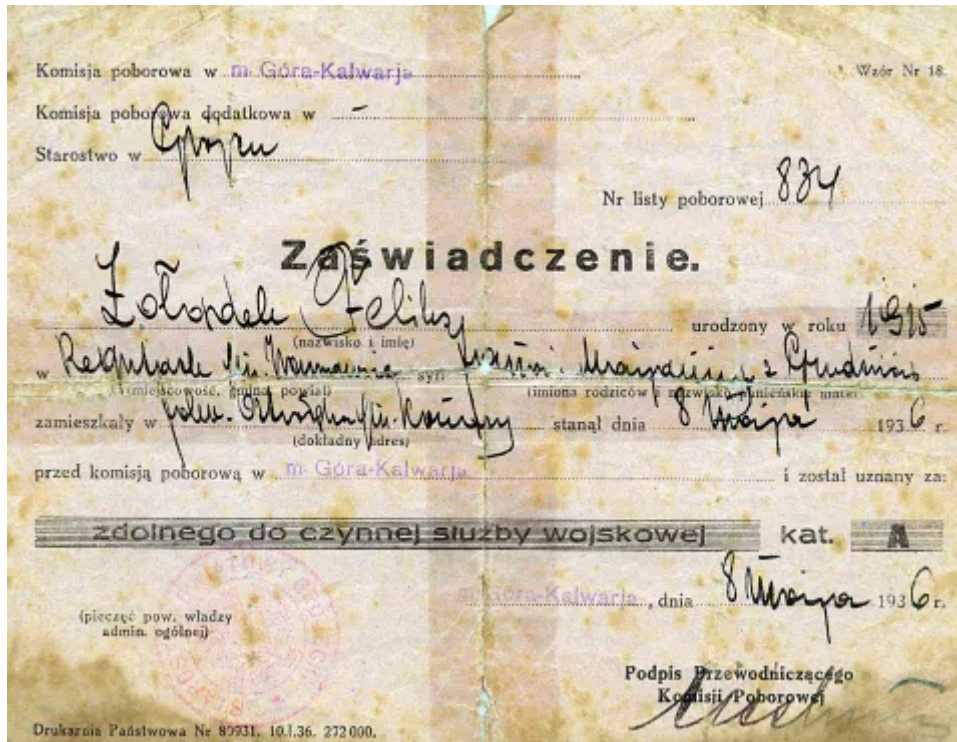 Komisja poborowa w m. Góra-Kalwarja
Wzór Nr 18.
Komisja poborowa dodatkowa w –
Starostwo w Grójcu
Nr listy poborowej 834
Zaświadczenie.
Feliks urodzony w roku 1915
(nazwisko i imię)
w syn z
(miejscowość, gmina, powiat) (imiona rodziców i nazwisko panieńskie matki)
zamieszkały w stanął dnia 8 Maja 1936 r.
(dokładny adres)
przed komisją poborową w m. Góra-Kalwarja i został uznany za:
zdolnego do czynnej służby wojskowej kat. A
m. Góra-Kalwarja, dnia 8 Maja 1936 r.
(pieczęć pow. władzy
admin. ogólnej)
Podpis Przewodniczącego
Komisji Poborowej
Drukarnia Państwowa Nr 80931. 10.I.36. 272 000.